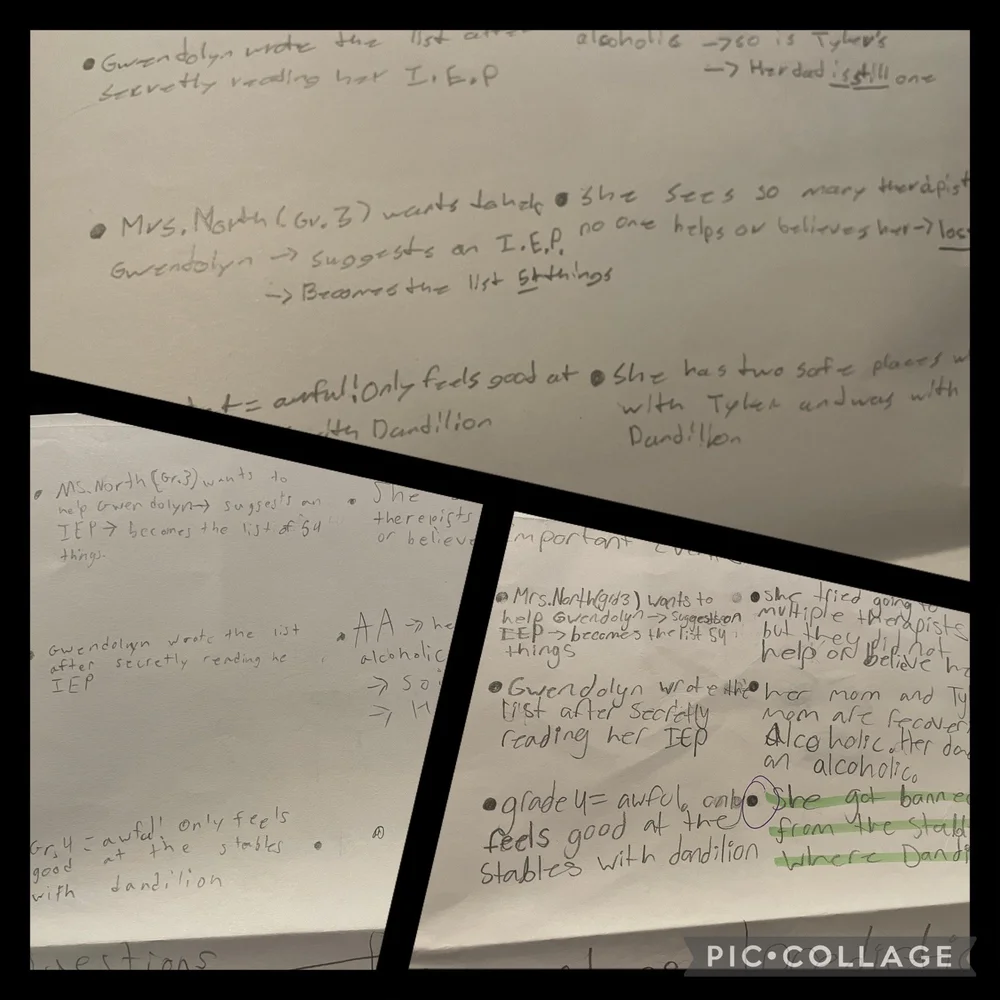 • Gwendolyn wrote the list after
secretly reading her I.E.P
alcoholic → so is Tyler's
→ Her dad is still one
• Mrs. North (Gr. 3) wants to help
Gwendolyn → suggests an I.E.P.
→ Becomes the list 54 things
• She sees so many therapist
no one helps or believes her →
= awful! Only feels good at
with Dandilion
• She has two safe places
with Tyler and was with
Dandilion
• MS. North (Gr.3) wants to
help Gwendolyn → suggests an
IEP → becomes the list of 54
things.
• She
therepists
or believe
• Gwendolyn wrote the list
after secretly reading he
IEP
• AA → he
alcoholic
→ so
→
Gr. 4 = awful! Only feels
good at the stables
with dandilion
•
mportant
• Mrs. North (grd3) wants to
help Gwendolyn → suggestion
IEP → becomes the list 54
things
• she tried going to
multiple therapists
but they did not
help or believe he
• Gwendolyn wrote the
list after secretly
reading her IEP
• her mom and Ty
mom are recover
Alcoholic. Her da
an alcoholic.
• grade 4 = awful. only
feels good at the
stables with dandilion
• She got banne
from the stab
where Dandi
uestions
PIC•COLLAGE